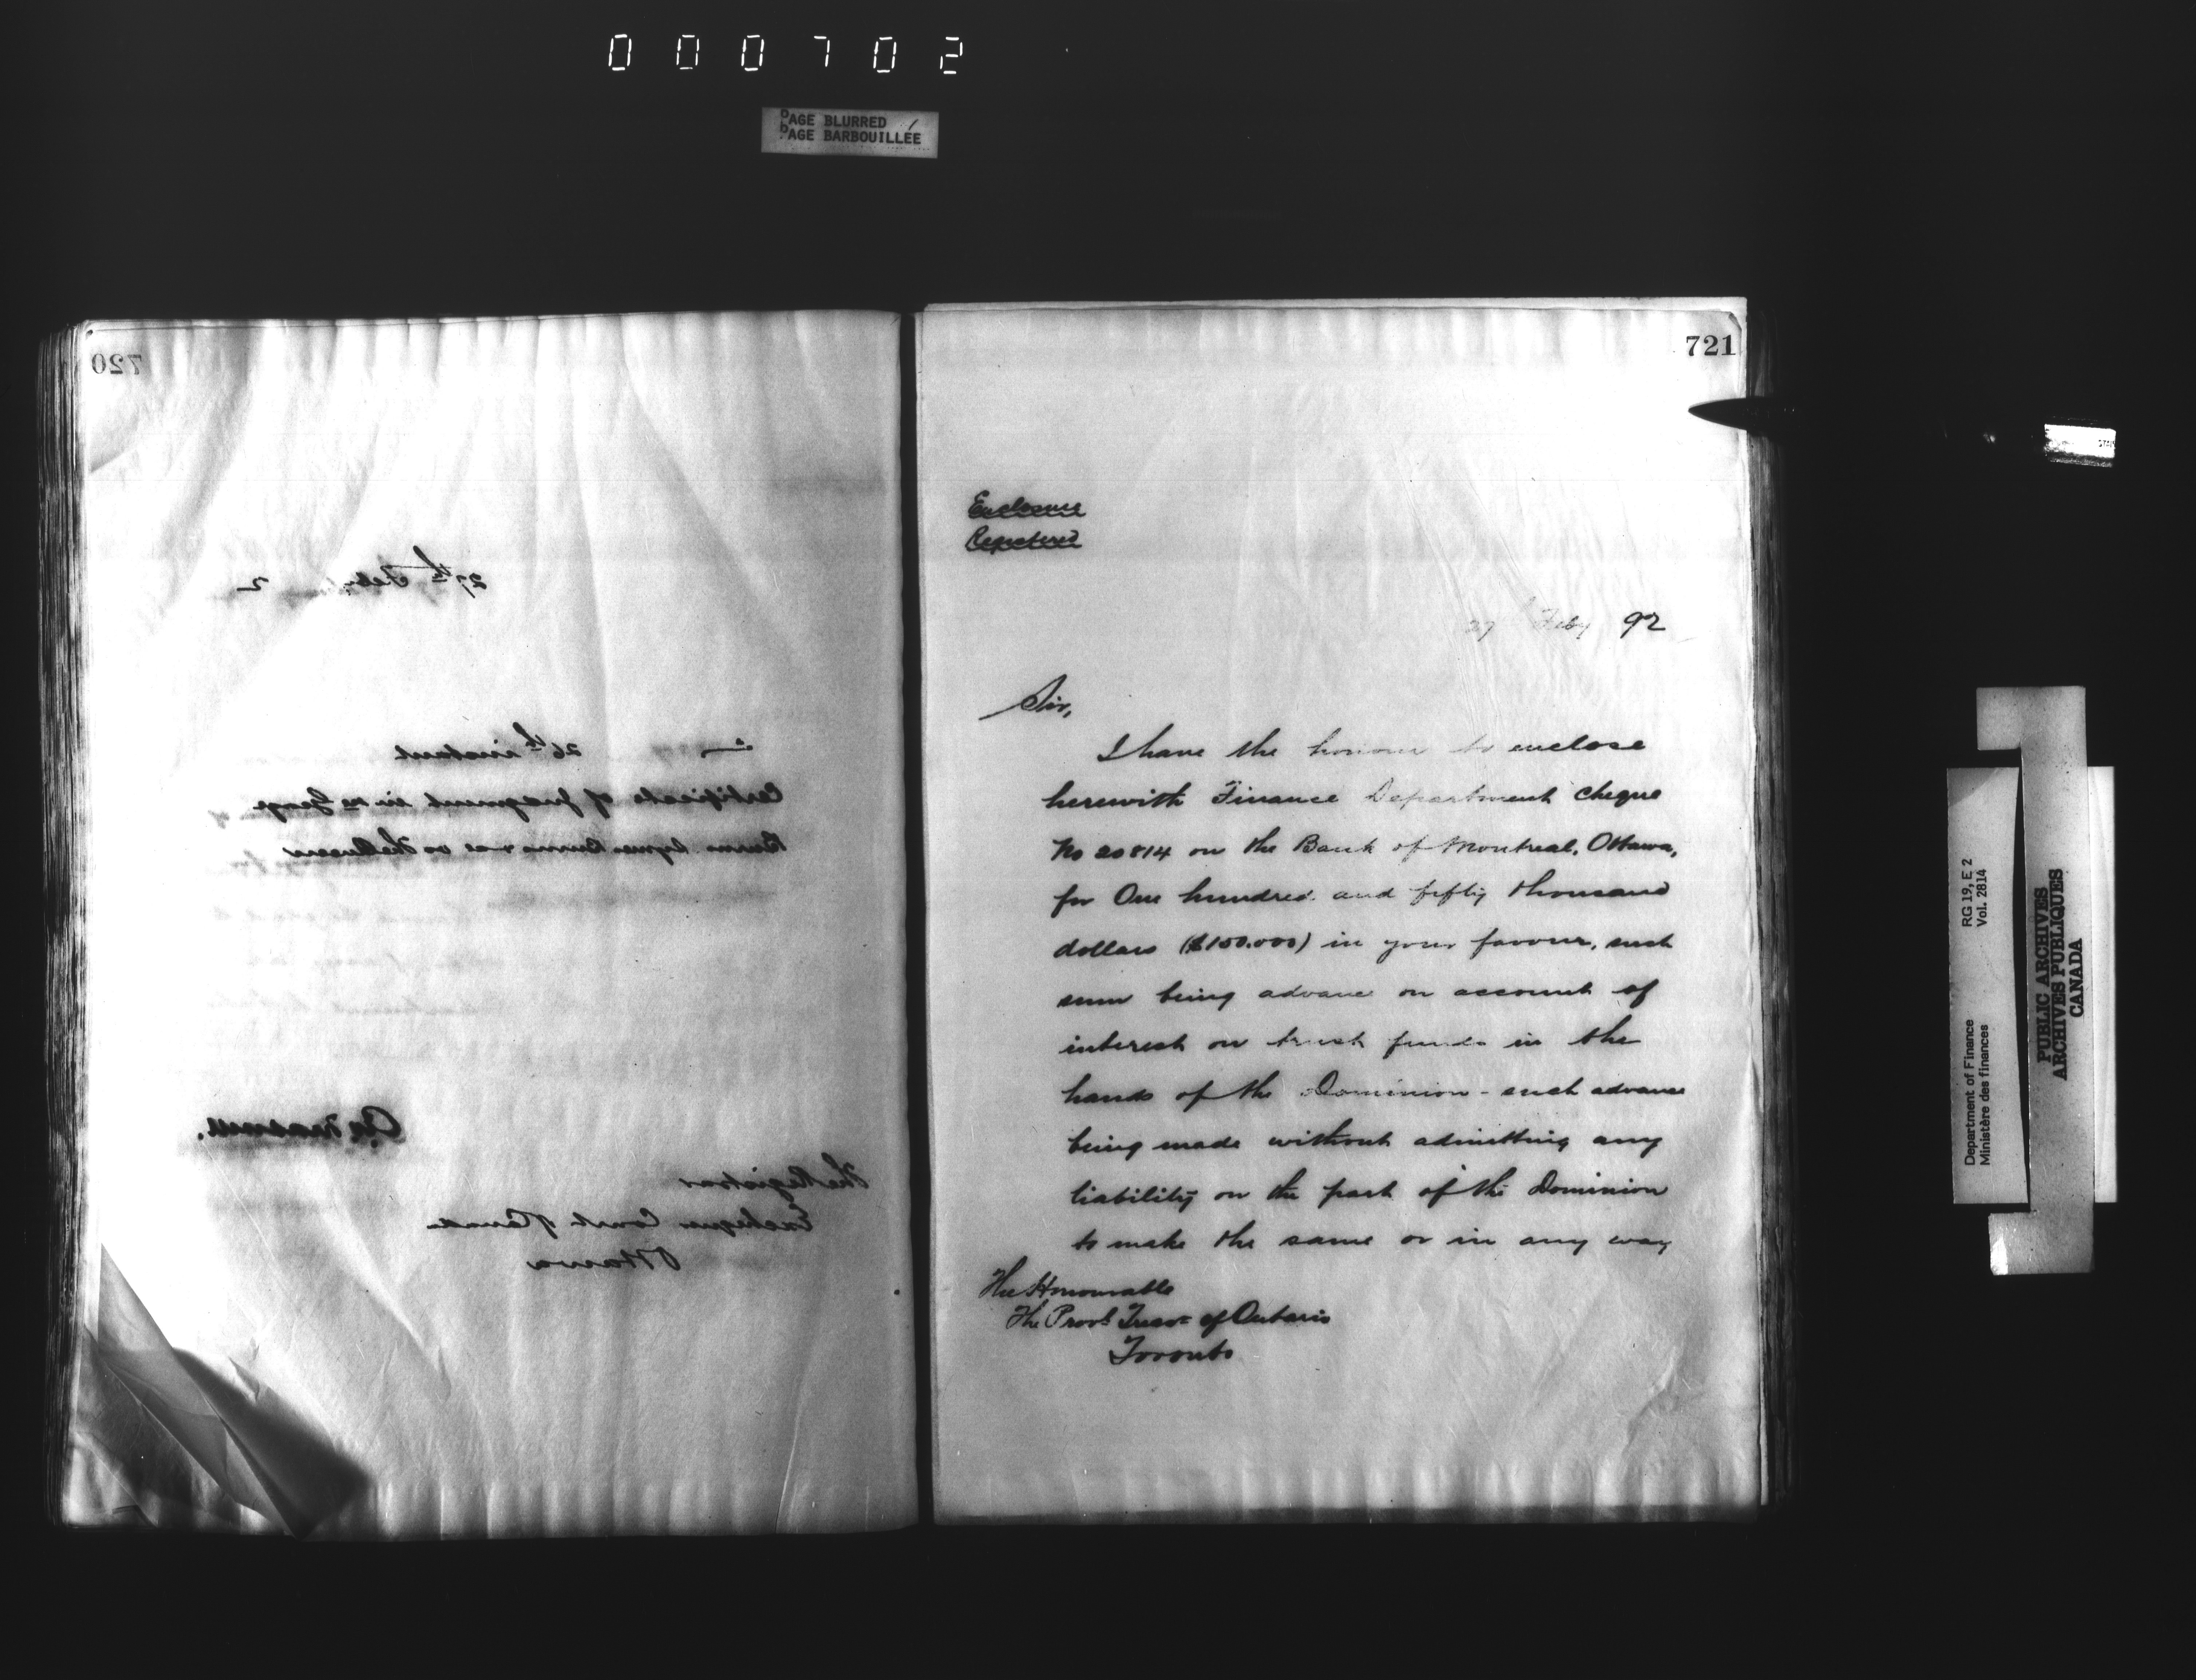 000702
PAGE BLURRED
PAGE BARBOUILLÉE
720
27th Feby 2
26th instant
Certificate of judgment in re George
Burns vs The Queen
The Registrar
Exchequer Court of Canada
Ottawa
721
Enclosure
Registered
27 Feby 92
Sir,
I have the honour to enclose
herewith Finance Department cheque
No 20814 on the Bank of Montreal, Ottawa,
for One hundred and fifty thousand
dollars ($150.000) in your favour, such
sum being advance on account of
interest on trust funds in the
hands of the Dominion - such advance
being made without admitting any
liability on the part of the Dominion
to make the same or in any way
The Honourable
The Provl Treasr of Ontario
Toronto
Department of Finance RG 19, E 2
Ministère des finances Vol. 2814
PUBLIC ARCHIVES
ARCHIVES PUBLIQUES
CANADA